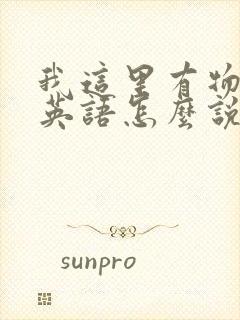 我這里有物
英語怎麼說
sunpro